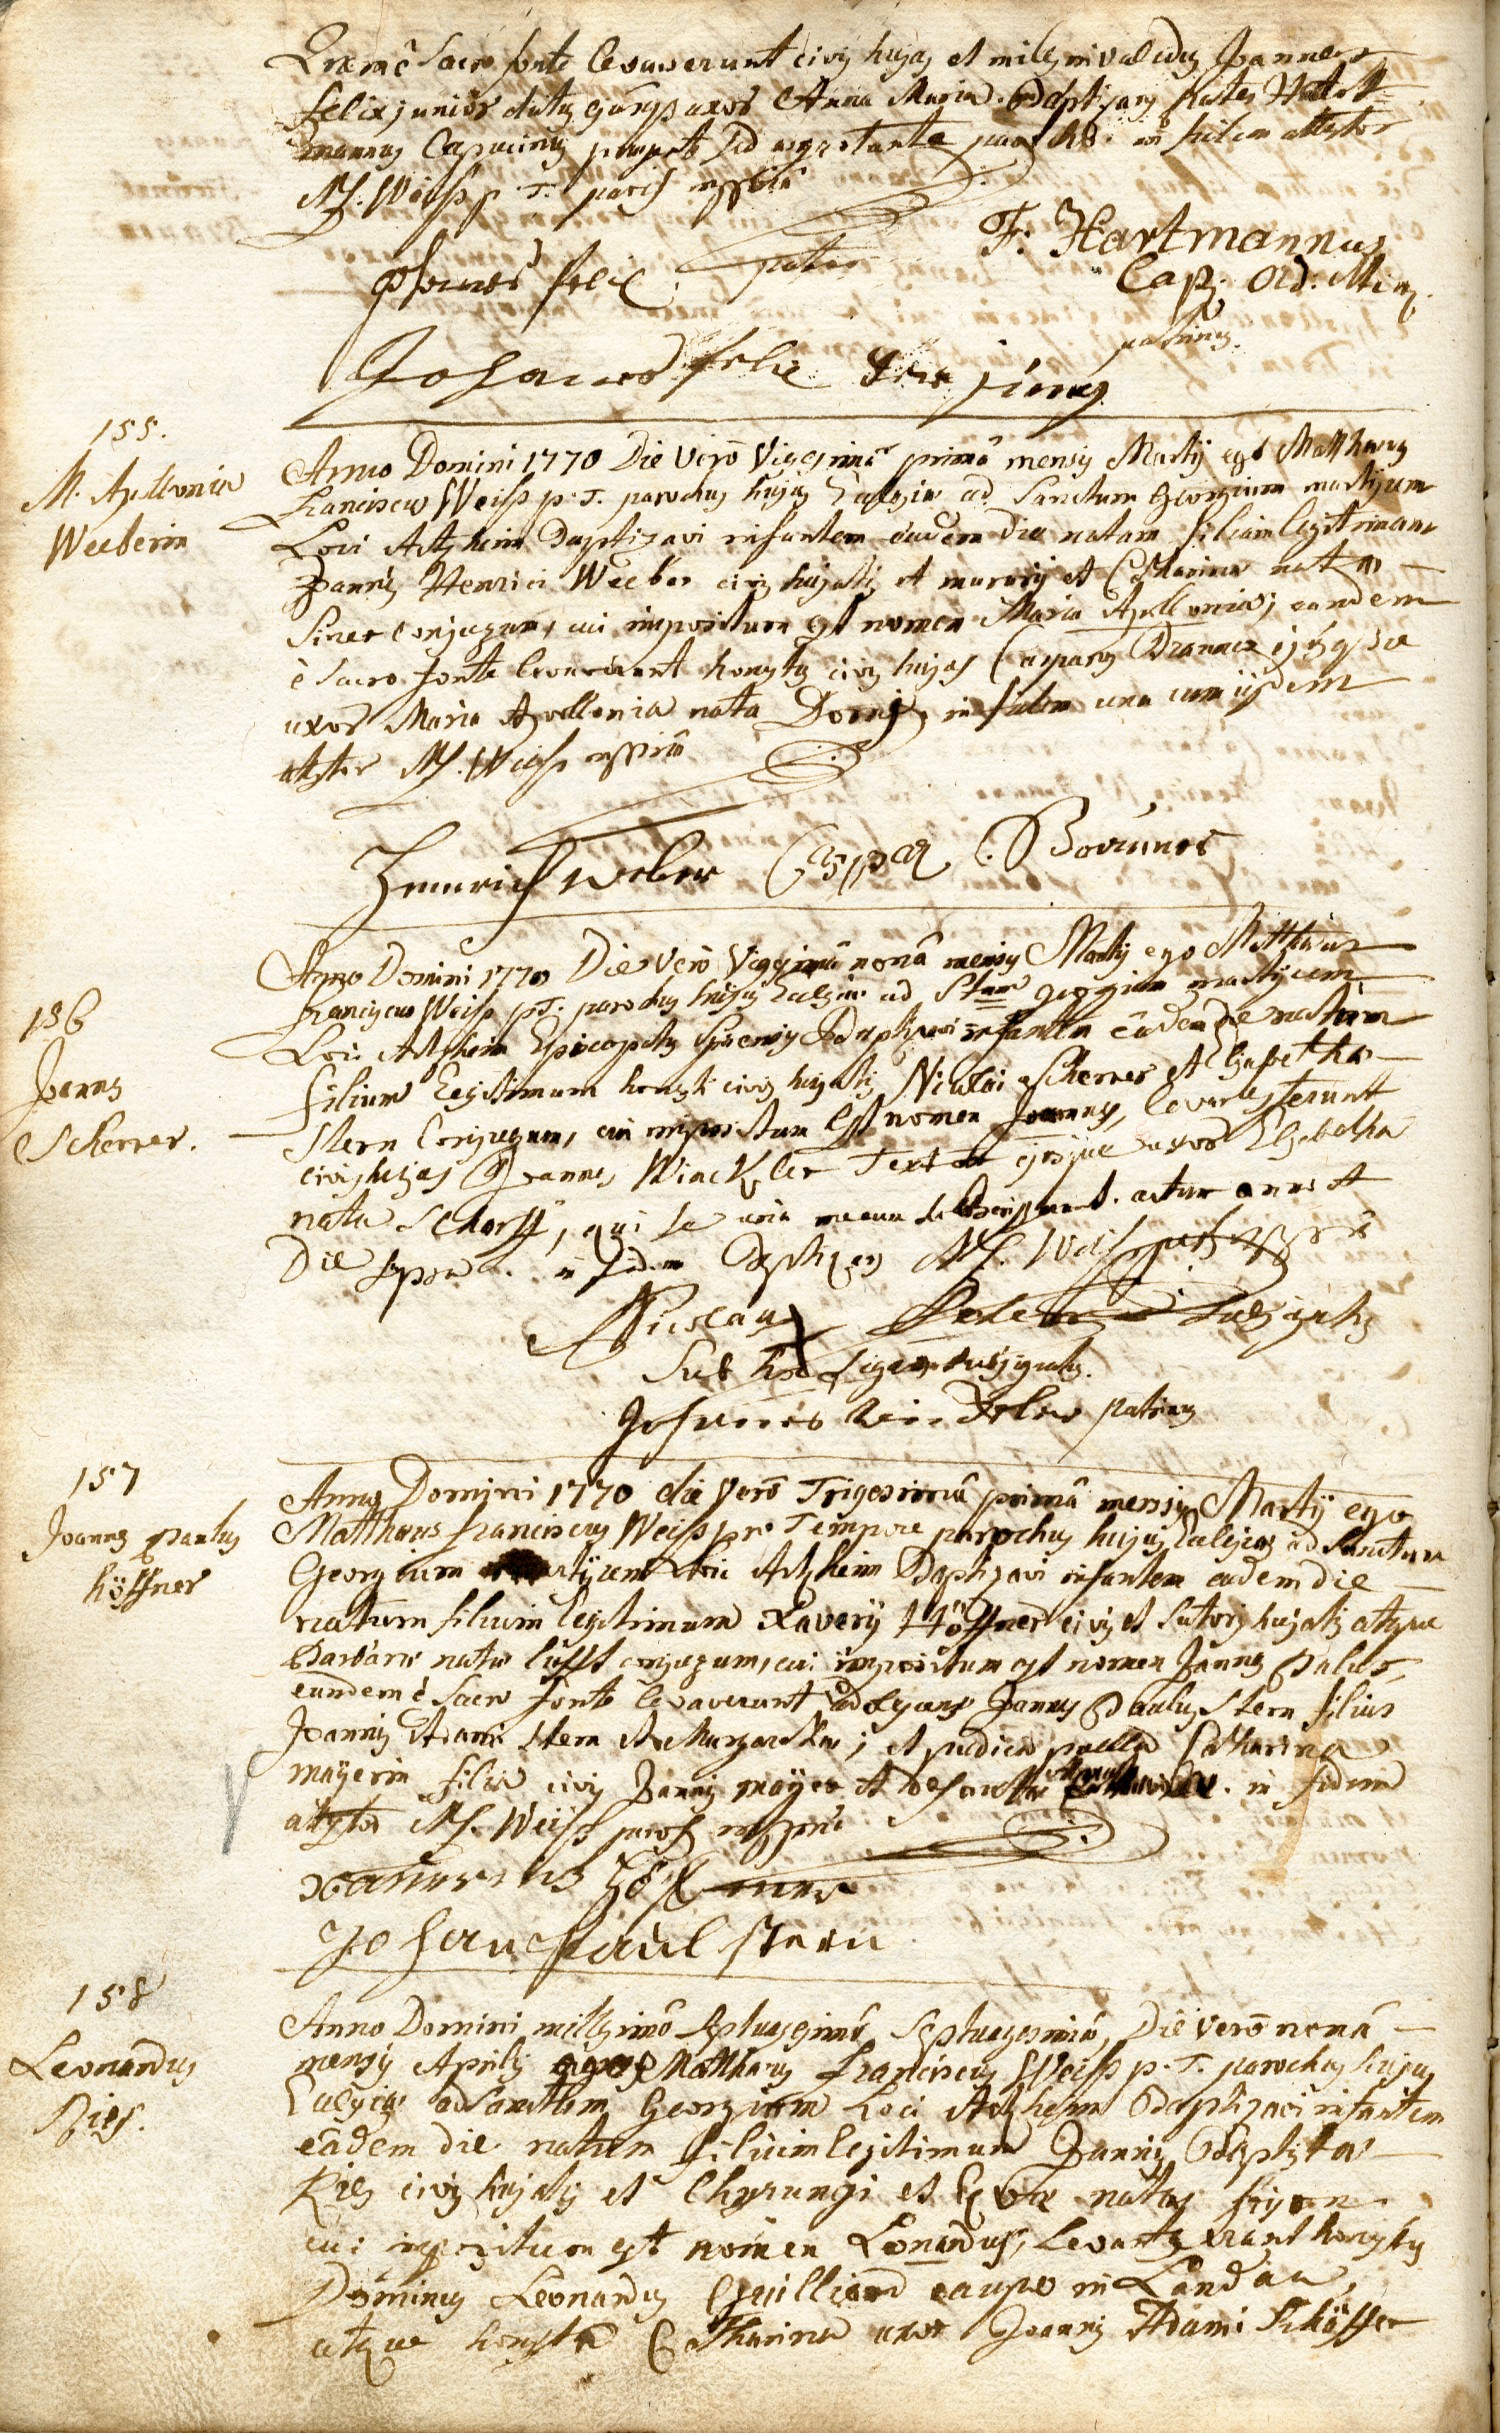 Sacro fonte levaverunt civis hujas et miles invalidus Joannes
Felix junior uxor Anna Maria. Baptizans pater Hart
mannus Capucinus aegrotante parocho. in fidem attestor
M. F. Weiss p. T. paroch mppriâ
F: Hartmannus
Johannes Felix pater
Cap: Ord: Min:
patrinus.
Johannes Felix der jung
155.
M. Apollonia
Weeberin
Anno Domini 1770 Die verò Vigesimâ primâ mensis Martij ego Matthaeus
Franciscus Weiss p. T. parochus hujus Eccles̄iae ad Sanctum Georgium martyrem
Loci Artzheim Baptizavi infantem eâdem die natam filiam legitimam
Joannis Henrici Weeber civis hujatis et murarij et Catharinae natae
conjugum, cui impositum est nomen Maria Apollonia; eandem
è Sacro fonte levaverunt honestus civis hujas Casparus Brauner ejusque
uxor Maria Apollonia nata in fidem una cum iisdem
attestor M. F. Weiss mppriâ
Heinrich Weber Caspar Braunner
156
Joannes
Scherrer.
Anno Domini 1770 Die Verò Vigesimâ nonâ mensis Martij ego Matthaeus
Franciscus Weiss p. T. parochus hujus Ecclesiae ad Stum Georgium martyrem
Loci Artzheim Episcopatus Spirensis Baptizavi infantem eâdem die natum
filium legitimum honesti civis hujatis Nicolai Scherrer et Elisabetha
Stern Conjugum, cui impositum Est nomen Joannes, levantes erunt
civis hujas Joannes Winckler ejusque uxor Elisabetha
nata Schorff, qui se una mecum subscripserunt. actum anno et
Die supra. in fidem Baptizans M. F. Weiss mppriâ
Nicolaus
Sub hoc signo
Johannes Winckler patrinus
157
Joannes Paulus
höffner
Anno Domini 1770 die verò Trigesimâ primâ mensis Martij ego
Matthaeus Franciscus Weiss pro Tempore parochus hujus Ecclesiae ad Sanctum
Georgium martyrem Loci Artzheim Baptizavi infantem eadem die
natum filium legitimum Xaverij Höffner civis et sutoris hujatis atque
Barbarae natae Lufft conjugum, cui impositum est nomen Joannes Paulus,
eundem è Sacro fonte levaverunt adolescens Joannes Paulus Stern filius
Joannis Adami Stern et Margarethae; et pudica puella Catharina
mayerin filia civis Joannis mayer et in fidem
attestor M. F. Weiss paroch mppriâ
Xaverius Höffner
Johan Paul Stern
158
Leonardus
Ries.
Anno Domini millesimô septingesimô Septuagesimô, Die verò nonâ
mensis Aprilis ego Matthaeus Franciscus Weiss p. T. parochus hujus
Ecclesiae ad Sanctum Georgium Loci Artzheim Baptizavi infantem
eâdem die natum filium legitimum Joannis Baptistae
Ries civis hujatis et Chyrurgi et Evae natae
cui impositum est nomen Leonardus, levantes erant honestus
Dominus Leonardus caupo in Landau,
atque honesta Catharina uxor Joannis Adami Schäffer